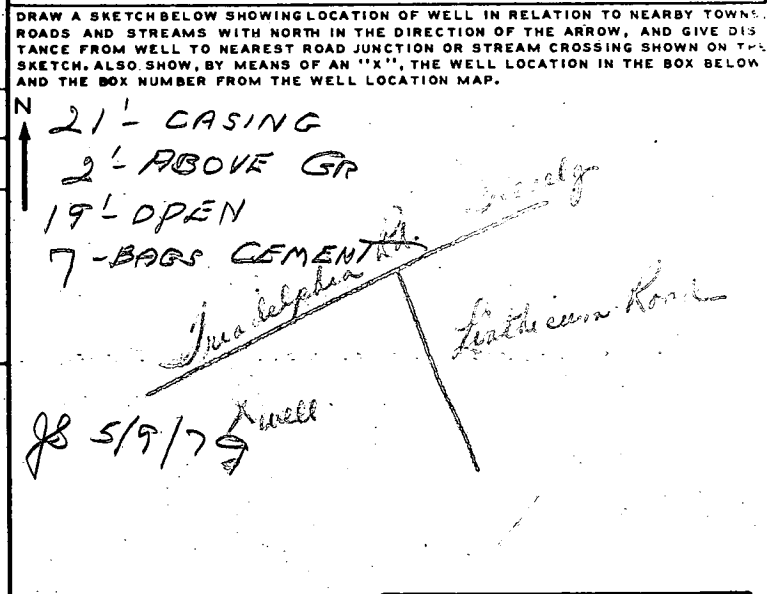 DRAW A SKETCH BELOW SHOWING LOCATION OF WELL IN RELATION TO NEARBY TOWNS,
ROADS AND STREAMS WITH NORTH IN THE DIRECTION OF THE ARROW, AND GIVE DIS
TANCE FROM WELL TO NEAREST ROAD JUNCTION OR STREAM CROSSING SHOWN ON THE
SKETCH. ALSO SHOW, BY MEANS OF AN "X", THE WELL LOCATION IN THE BOX BELOW
AND THE BOX NUMBER FROM THE WELL LOCATION MAP.
N
21'- CASING
2'- ABOVE GR
19'- OPEN
7-BAGS CEMENT
Triadelphia Rd.
Linthicum Road
X well.
JS 5/9/79